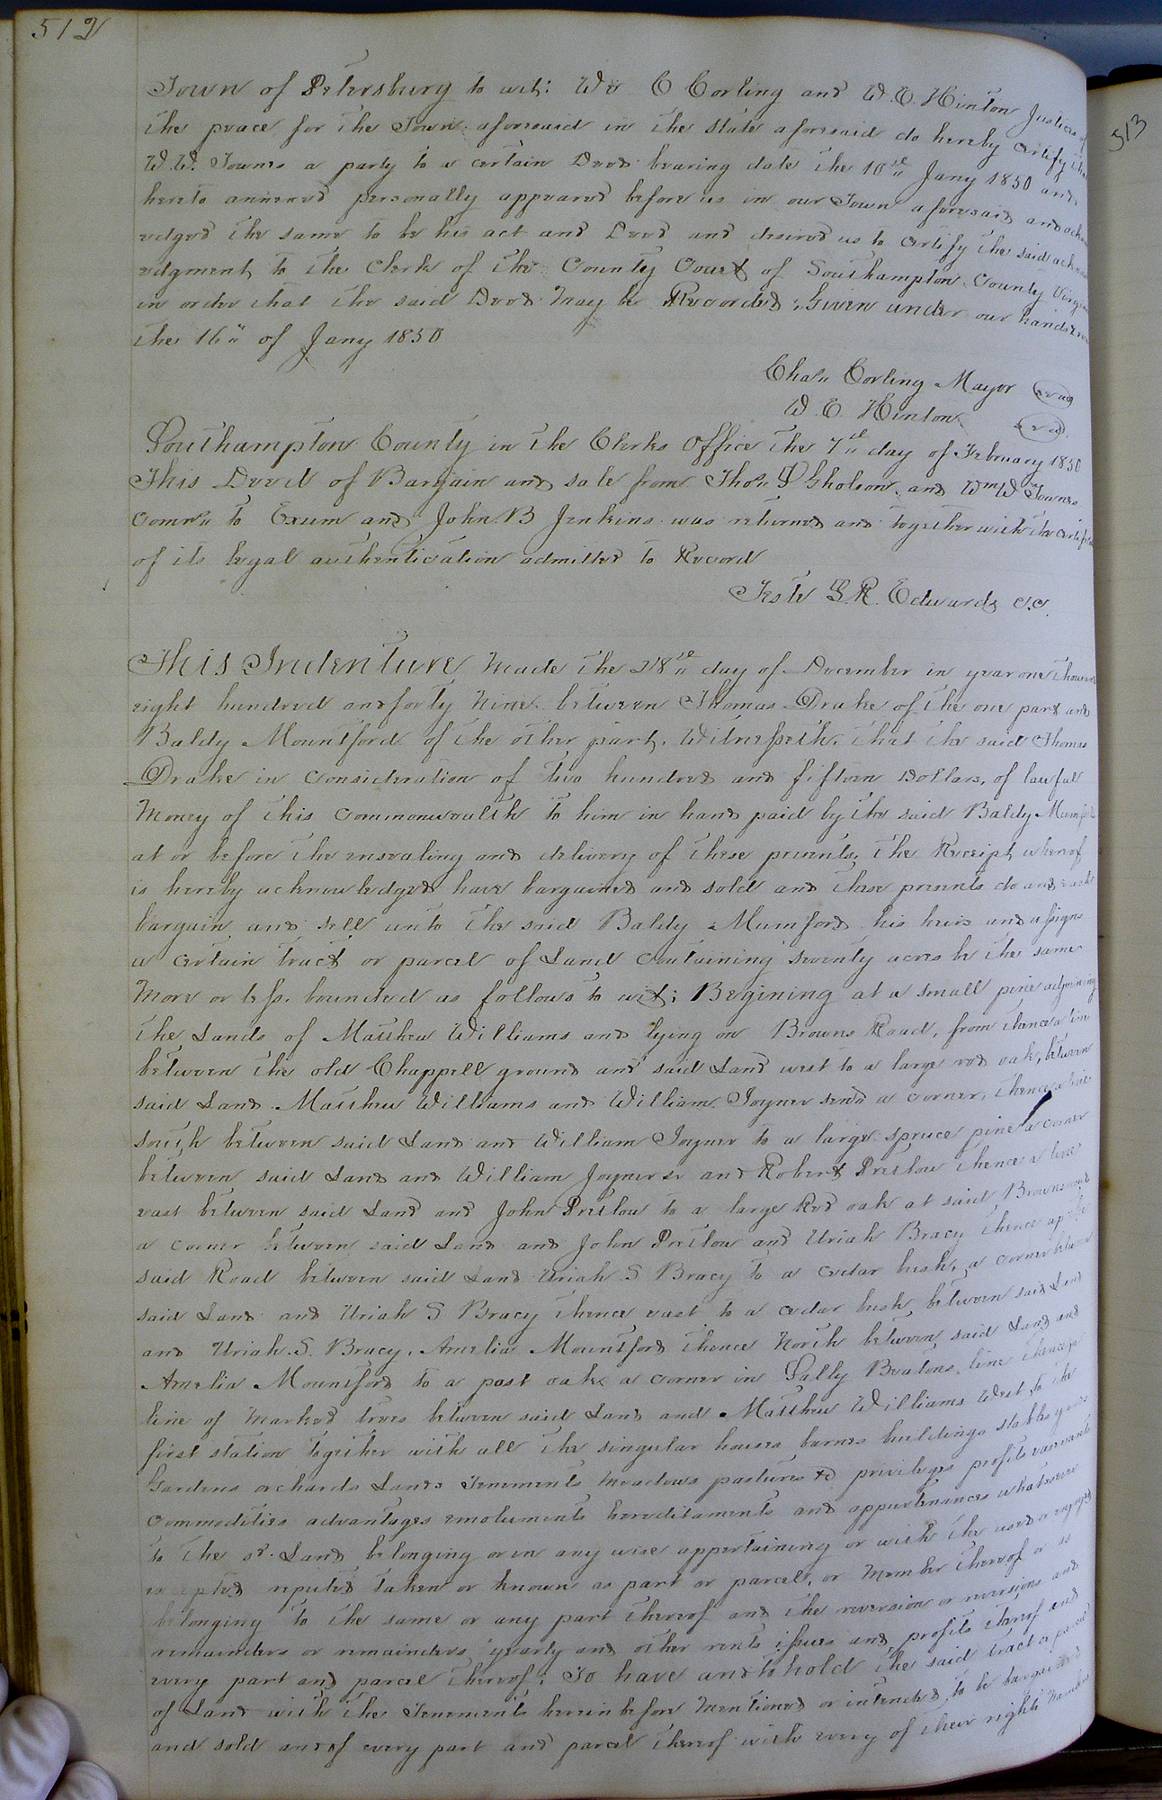 512
513
Town of Petersburg to wit: We C Corling and W. E. Hinton Justices of
the peace for the Town aforesaid in the State aforesaid do hereby certify that
W. W. Townes a party to a certain Deed bearing date the 10th Jany 1850 and
hereto annexed personally appeared before us in our Town aforesaid and acknowl
edged the same to be his act and Deed and desired us to certify the said acknowl
edgment to the Clerk of the County Court of Southampton County Virginia
in order that the said Deed may be Recorded, Given under our hands & seals
the 16" of Jany 1850
Chas" Corling Mayor seal
W. E. Hinton seal
Southampton County in the Clerks Office the 7th day of February 1850
This Deed of Bargain and sale from Thos" S Gholson and Wm W Townes
comrs" to Exum and John B Jenkins was returned and together with the certificate
of its legal authentication admitted to Record
Teste L. R. Edwards c.c.
This Indenture made the 28th day of December in year one thousand
eight hundred and forty Nine between Thomas Drake of the one part and
Baldy Mountford of the other part, Witnesseth, that the said Thomas
Drake in consideration of two hundred and fifteen Dollars, of lawful
Money of this commonwealth to him in hand paid by the said Baldy Mumford
at or before the ensealing and delivery of these presents, the Receipt whereof
is hereby acknowledged have bargained and sold and these presents do and each
bargain and sell unto the said Baldy Mumford his heirs and assigns
a certain tract or parcel of Land containing seventy acres be the same
more or less bounded as follows to wit; Begining at a small pine adjoining
the Lands of Matthew Williams and lying on Browns Road, from thence a line
between the old Chappell ground and said Land west to a large red oak, between
said Land Matthew Williams and William Joyner senr a corner, thence a line
south between said Land and William Joyner to a large spruce pine a corner
between said Land and William Joyner sr and Robert Pretlow thence a line
east between said Land and John Pretlow to a large Red oak at said Browns road
a corner between said Land and John Pretlow and Uriah Bracy thence up the
said Road between said Land Uriah S Bracy to a cedar bush, a corner between
said Land and Uriah S Bracy thence east to a cedar bush, between said Land
and Uriah. S. Bracy, Amelia Mountford thence North between said Land and
Amelia Mountford to a post oak a corner in Sally Beatons line thence a
line of marked trees between said Land and Matthew Williams West to the
first station together with all the singular houses barnes buildings stables yards
Gardens orchards Lands Tenements Meadows pastures &c privileges profits easements
commodities advantages emoluments hereditaments and appurtenances whatsoever
to the sd. Land belonging or in any wise appertaining or with the used or enjoyed
accepted reputed taken or known as part or parcel, or Member thereof or as
belonging to the same or any part thereof and the reversion or reversions and
remainders or remainders yearly and other rents issues and profits thereof and
every part and parcel thereof; To have and to hold the said tract or parcel
of Land with the Tenements herein before mentioned or intended to be bargained
and sold and of every part and parcel thereof with every of their rights members